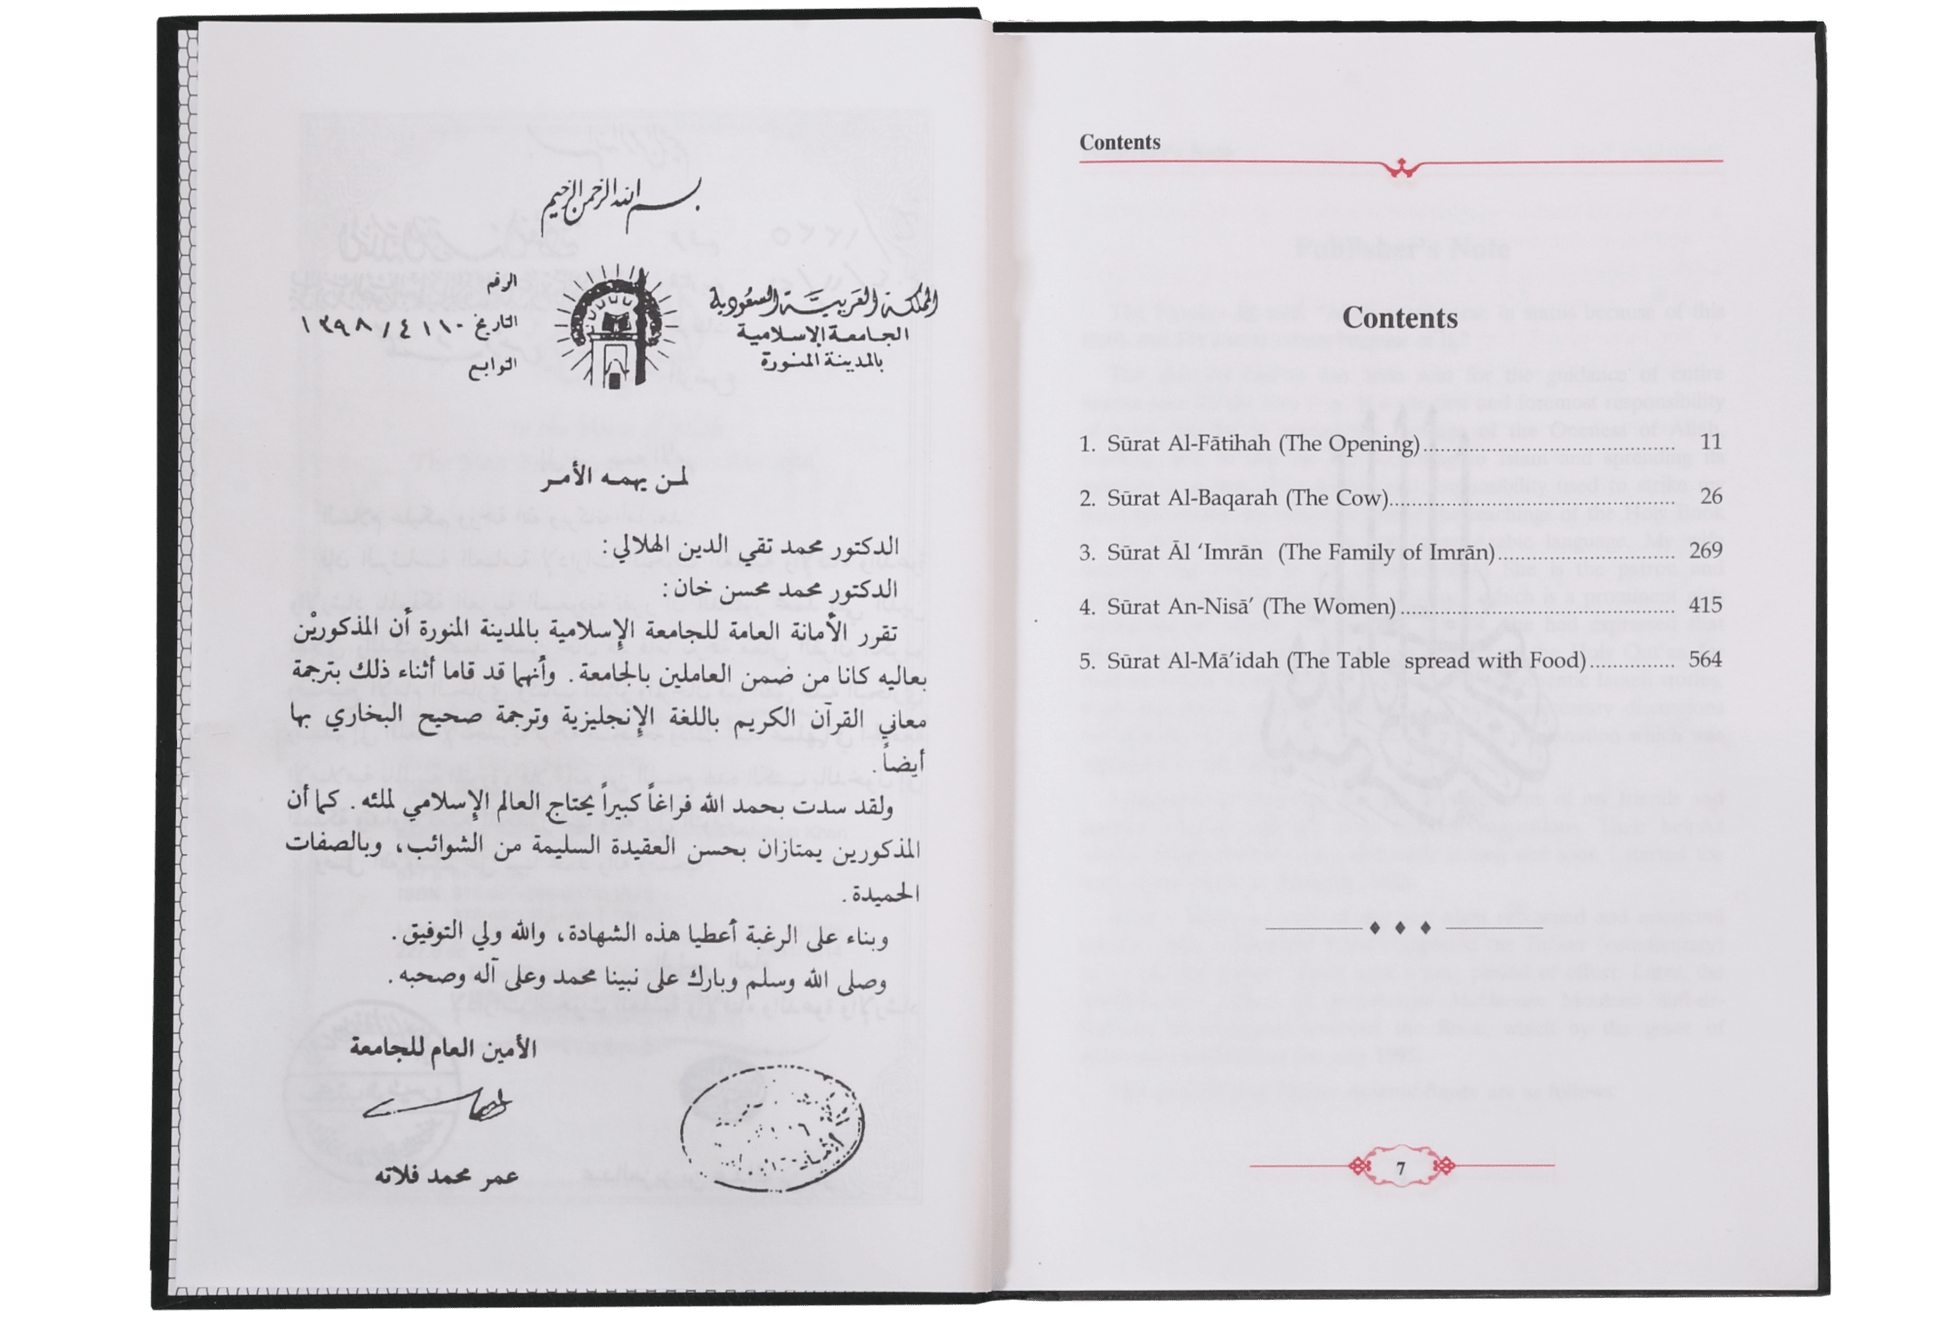 بسم الله الرحمن الرحيم
المملكة العربية السعودية
الجامعة الإسلامية
بالمدينة المنورة
الرقم
التاريخ ١٠ / ٤ / ١٣٩٨
التوابع
لمن يهمه الأمر
الدكتور محمد تقي الدين الهلالي:
الدكتور محمد محسن خان:
تقرر الأمانة العامة للجامعة الإسلامية بالمدينة المنورة أن المذكوريْن
بعاليه كانا من ضمن العاملين بالجامعة. وأنهما قد قاما أثناء ذلك بترجمة
معاني القرآن الكريم باللغة الإنجليزية وترجمة صحيح البخاري بها
أيضاً.
ولقد سدت بحمد الله فراغاً كبيراً يحتاج العالم الإسلامي لملئه. كما أن
المذكورين يمتازان بحسن العقيدة السليمة من الشوائب، وبالصفات
الحميدة.
وبناء على الرغبة أعطيا هذه الشهادة، والله ولي التوفيق.
وصلى الله وسلم وبارك على نبينا محمد وعلى آله وصحبه.
الأمين العام للجامعة
عمر محمد فلاته
Contents
Contents
1. Sūrat Al-Fātihah (The Opening) 11
2. Sūrat Al-Baqarah (The Cow) 26
3. Sūrat Āl ‘Imrān (The Family of Imrān) 269
4. Sūrat An-Nisā’ (The Women) 415
5. Sūrat Al-Mā’idah (The Table spread with Food) 564
7